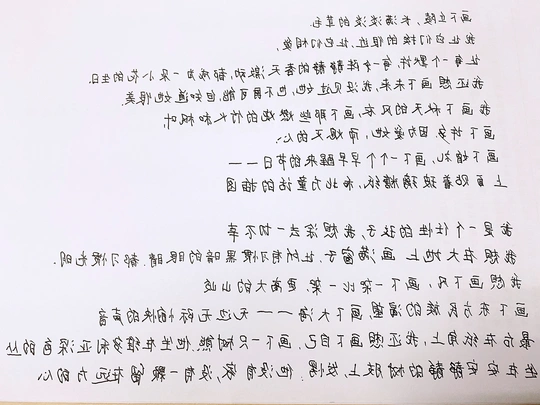 画下丘陵，长满淡淡的茸毛
我让它们挨的很近，让它们相爱，
让每一个默许，每一阵静静的春天激动，都成为一朵小花的生日
我还想画下未来，我没见过她，也不可能，但知道她很美
我画下秋天的风衣，画下那些燃烧的竹火和枫叶，
画下许多因为爱她，而熄灭的心
画下婚礼，画下一个个早早醒来的节日——
上面贴着玻璃糖纸，和北方童话的插图
我是一个任性的孩子，我想涂去一切不幸
我想在大地上画满窗子，让所有习惯黑暗的眼睛都习惯光明。
我想画下风，画下一架比一架更高大的山岭
画下东方民族的渴望，画下大海——无边无际愉快的声音
最后在纸角上，我还想画下自己，画下一只树熊，他坐在维多利亚深色的丛
坐在安安静静的树枝上，发愣，他没有家，没有一颗留在远方的心